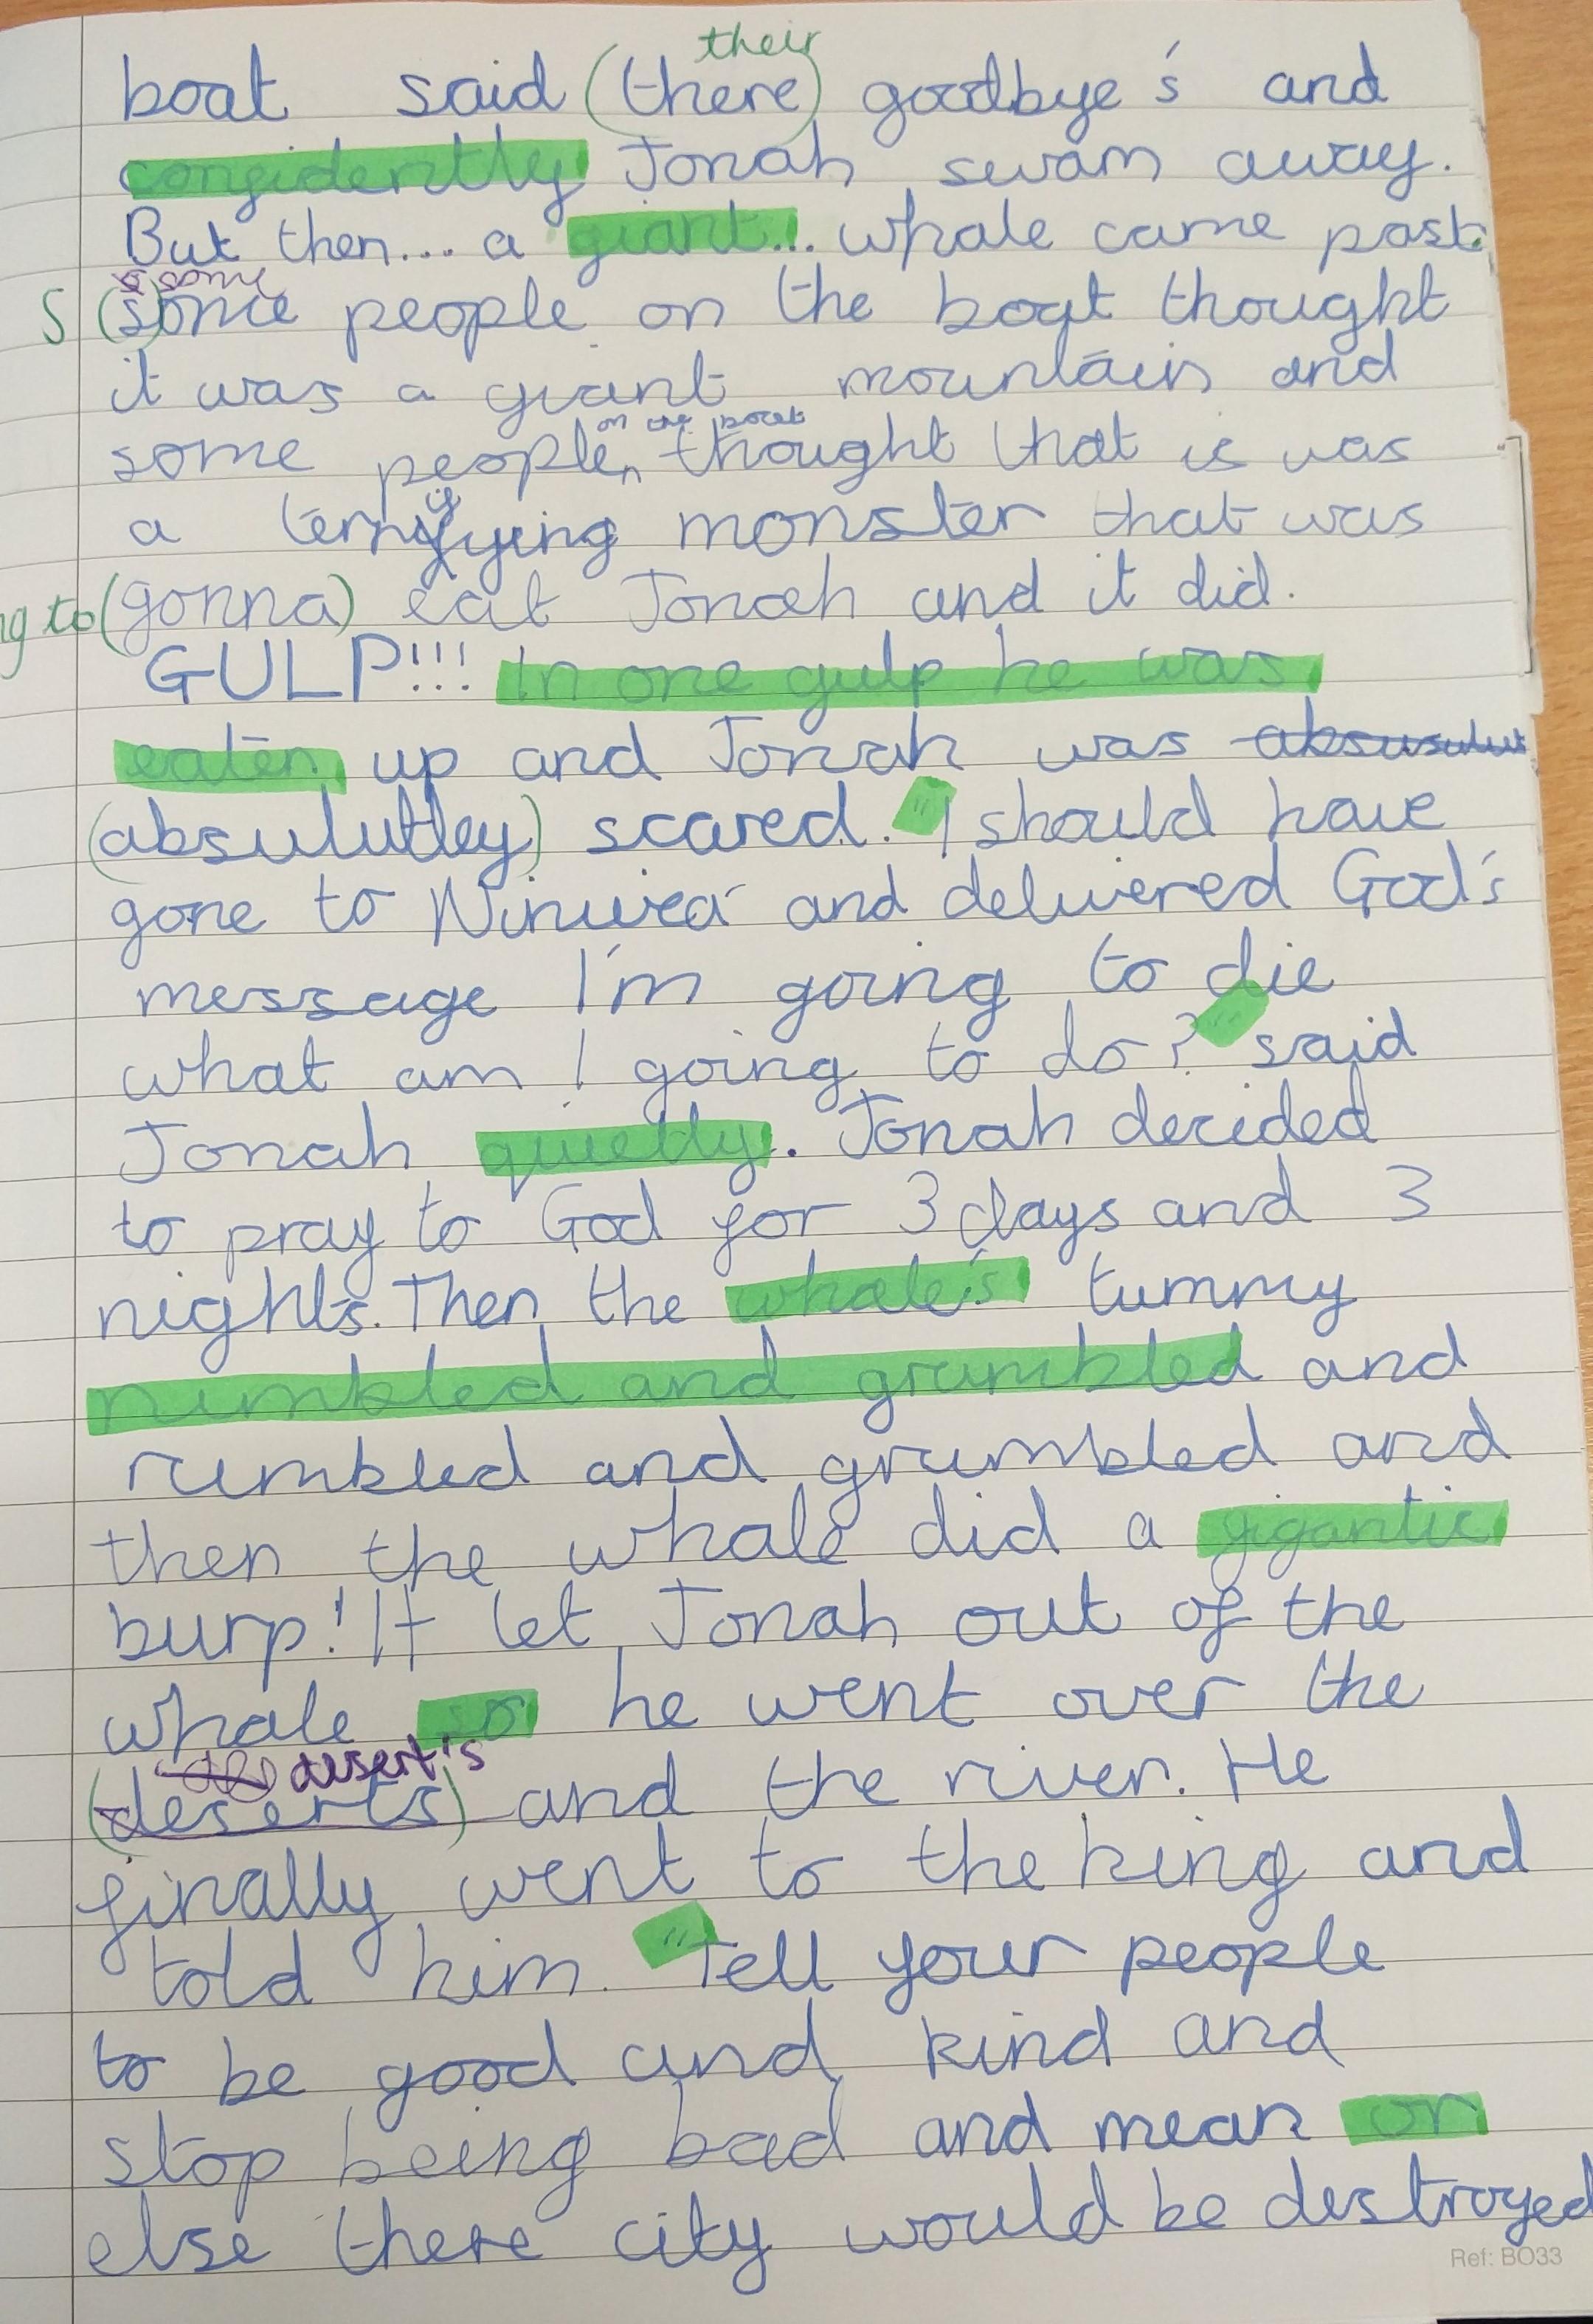 their
boat said (there) goodbye's and
confidently Jonah swam away.
But then... a giant... whale came past.
some
S (s)ome people on the boat thought
it was a giant mountain and
on the boat
some people, thought that is was
a terrifying monster that was
ng to (gonna) eat Jonah and it did.
GULP!!! In one gulp he was
eaten up and Jonah was
(absulutley) scared. "I should have
gone to Ninivea and delivered God's
message I'm going to die
what am I going to do?" said
Jonah quietly. Jonah decided
to pray to God for 3 days and 3
nights. Then the whale's tummy
rumbled and grumbled and
rumbled and grumbled and
then the whale did a gigantic
burp! It let Jonah out of the
whale so he went over the
desert's
(deserts) and the river. He
finally went to the king and
told him. "Tell your people
to be good and kind and
stop being bad and mean or
else there city would be destroyed
Ref: BO33